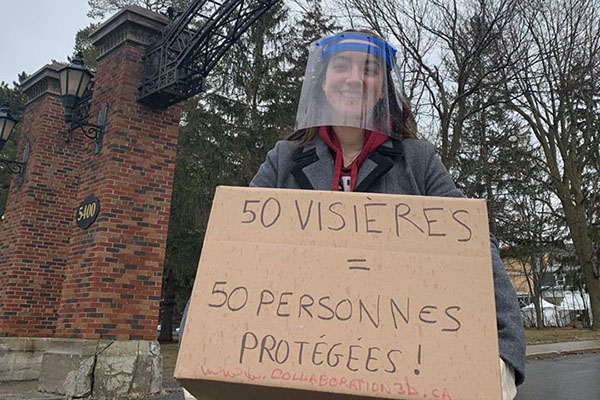 5400
50 VISIÈRES
=
50 PERSONNES
PROTÉGÉES !
www.COLLABORATION3D.ca